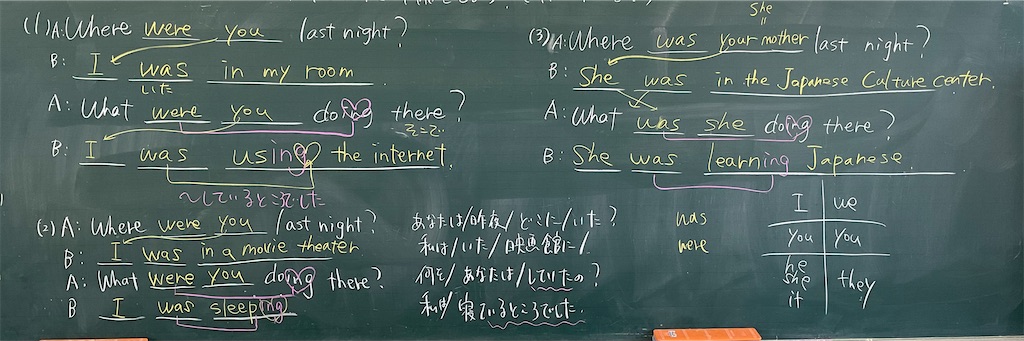 (1) A: Where were you last night?
B: I was in my room
いた
A: What were you doing there?
そこで
B: I was using the internet.
〜しているところでした
(2) A: Where were you last night?
B: I was in a movie theater
A: What were you doing there?
B I was sleeping
あなたは/昨夜/どこに/いた?
私は/いた/映画館に/
何を/あなたは/していたの?
私は/寝ているところでした.
She
=
(3) A: Where was your mother last night?
B: She was in the Japanese Culture center.
A: What was she doing there?
B: She was learning Japanese.
was
were
I we
You you
he
she they
it